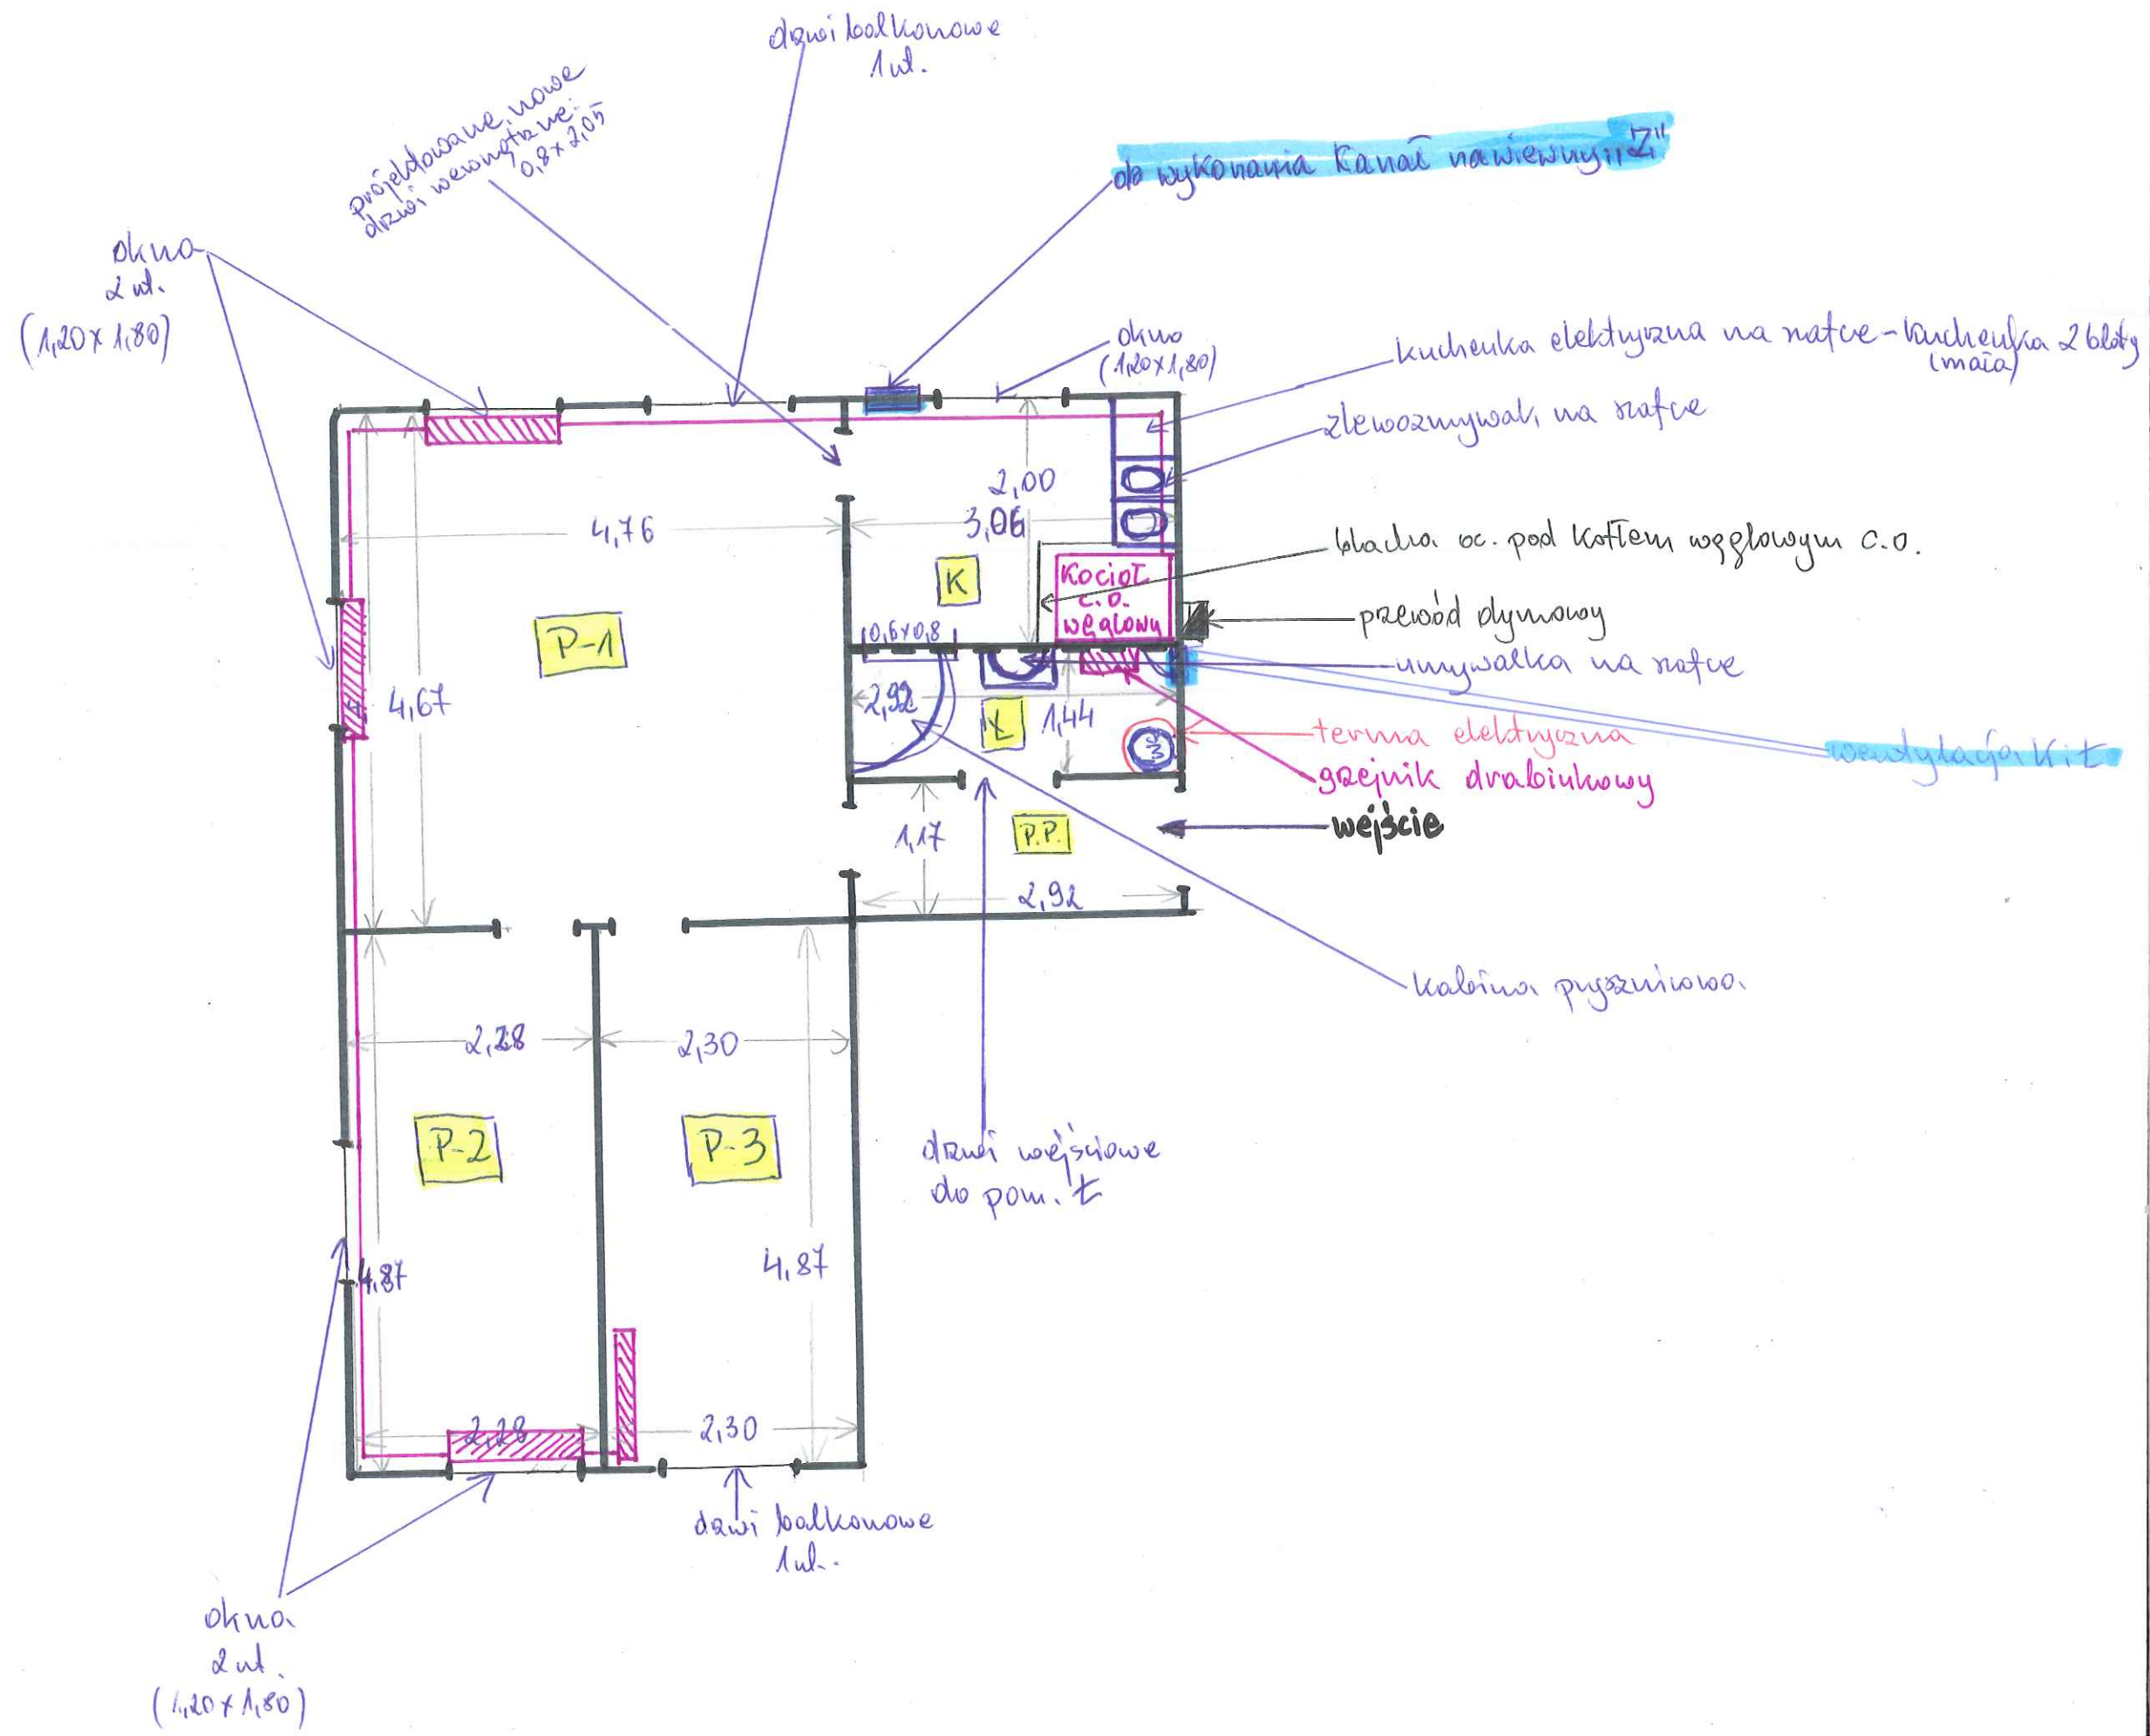 drzwi balkonowe
1 szt.
projektowane, nowe
drzwi wewnątrzne:
0,8 x 2,05
do wykonania kanał nawiewny „Z"
okna
2 szt.
(1,20 x 1,80)
okno
(1,20 x 1,80)
kuchenka elektryczna na szafce - kuchenka 2 blaty
(mała)
zlewozmywak na szafce
2,00
4,76
3,06
blacha oc. pod kotłem węglowym c.o.
K
Kocioł
c.o.
węglowy
przewód dymowy
P-1
0,6 x 0,8
umywalka na szafce
4,67
2,92
Ł
1,44
terma elektryczna
wentylacja K i Ł
grzejnik drabinkowy
wejście
1,17
P.P.
2,92
kabina prysznicowa
2,28
2,30
P-2
P-3
drzwi wejściowe
do pom. Ł
4,87
4,87
2,28
2,30
drzwi balkonowe
1 szt.
okna
2 szt.
(1,20 x 1,80)